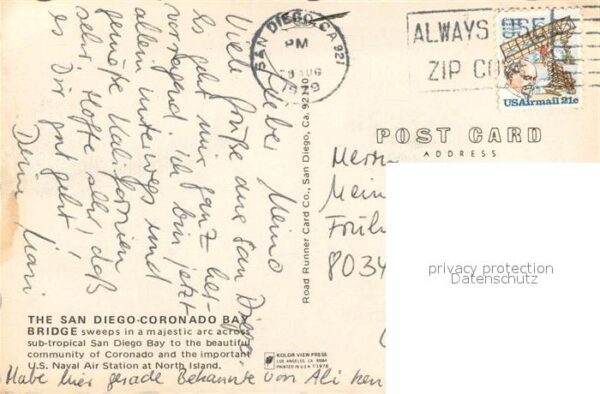 SAN DIEGO, CA 921
PM
AUG
ALWAYS USE
ZIP CO
USAirmail 21c
POST CARD
ADDRESS
Lieber Meino
Viele Grüße aus San Diego.
Es geht mir ganz her-
vorragend. Ich bin jetzt
allein unterwegs und
genieße Kalifornien
sehr. Hoffe sehr, daß
es Dir gut geht!
Dein
Road Runner Card Co., San Diego, Ca. 92110
Herrn
Mein
Früh
8034
privacy protection
Datenschutz
THE SAN DIEGO-CORONADO BAY
BRIDGE sweeps in a majestic arc across
sub-tropical San Diego Bay to the beautiful
community of Coronado and the important
U.S. Naval Air Station at North Island.
KOLOR VIEW PRESS
LOS ANGELES, CA
PRINTED IN U.S.A
Habe hier gerade Bekannte von Ali ken